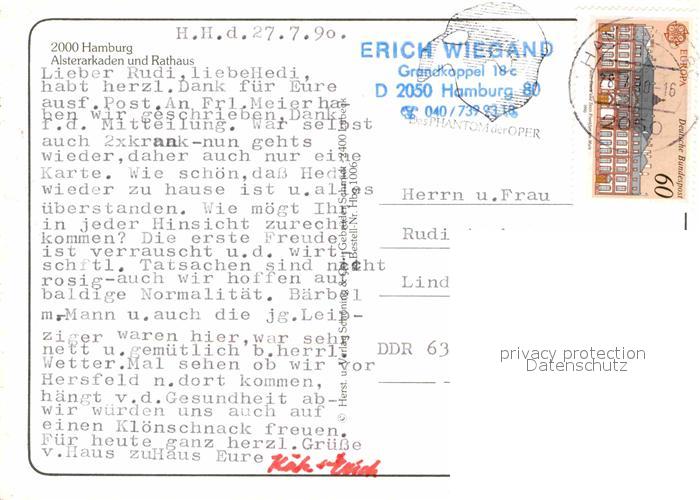 H.H.d.27.7.90.
2000 Hamburg
Alsterarkaden und Rathaus
Lieber Rudi,liebeHedi,
habt herzl.Dank für Eure
ausf.Post.An Frl.Meierha-
ben wir geschrieben,Dank
f.d. Mitteilung. War selbst
auch 2xkrank-nun gehts
wieder,daher auch nur eine
Karte. Wie schön,daß Hedi
wieder zu hause ist u.alles
überstanden. Wie mögt Ihr
in jeder Hinsicht zurecht
kommen? Die erste Freude
ist verrauscht u.d. wirt-
schftl. Tatsachen sind nicht
rosig-auch wir hoffen auf
baldige Normalität. Bärbel
m.Mann u.auch die jg.Leip-
ziger waren hier,war sehr
nett u.gemütlich b.herrl.
Wetter.Mal sehen ob wir vor
Hersfeld n.dort kommen,
hängt v.d.Gesundheit ab-
wir würden uns auch auf
einen Klönschnack freuen.
Für heute ganz herzl.Grüße
v.Haus zuHaus Eure
Käte + Erich
© Herst. u. Verlag Schöning & Co. + Gebrüder Schmidt · 2400
Bestell-Nr. Hbg 1006
ERICH WIEGAND
Grandkoppel 18 c
D 2050 Hamburg 80
☎ 040/739 93 18
Das PHANTOM der OPER
EUROPA
Deutsche Bundespost
60
Herrn u.Frau
Rudi
Lind
DDR 63
privacy protection
Datenschutz